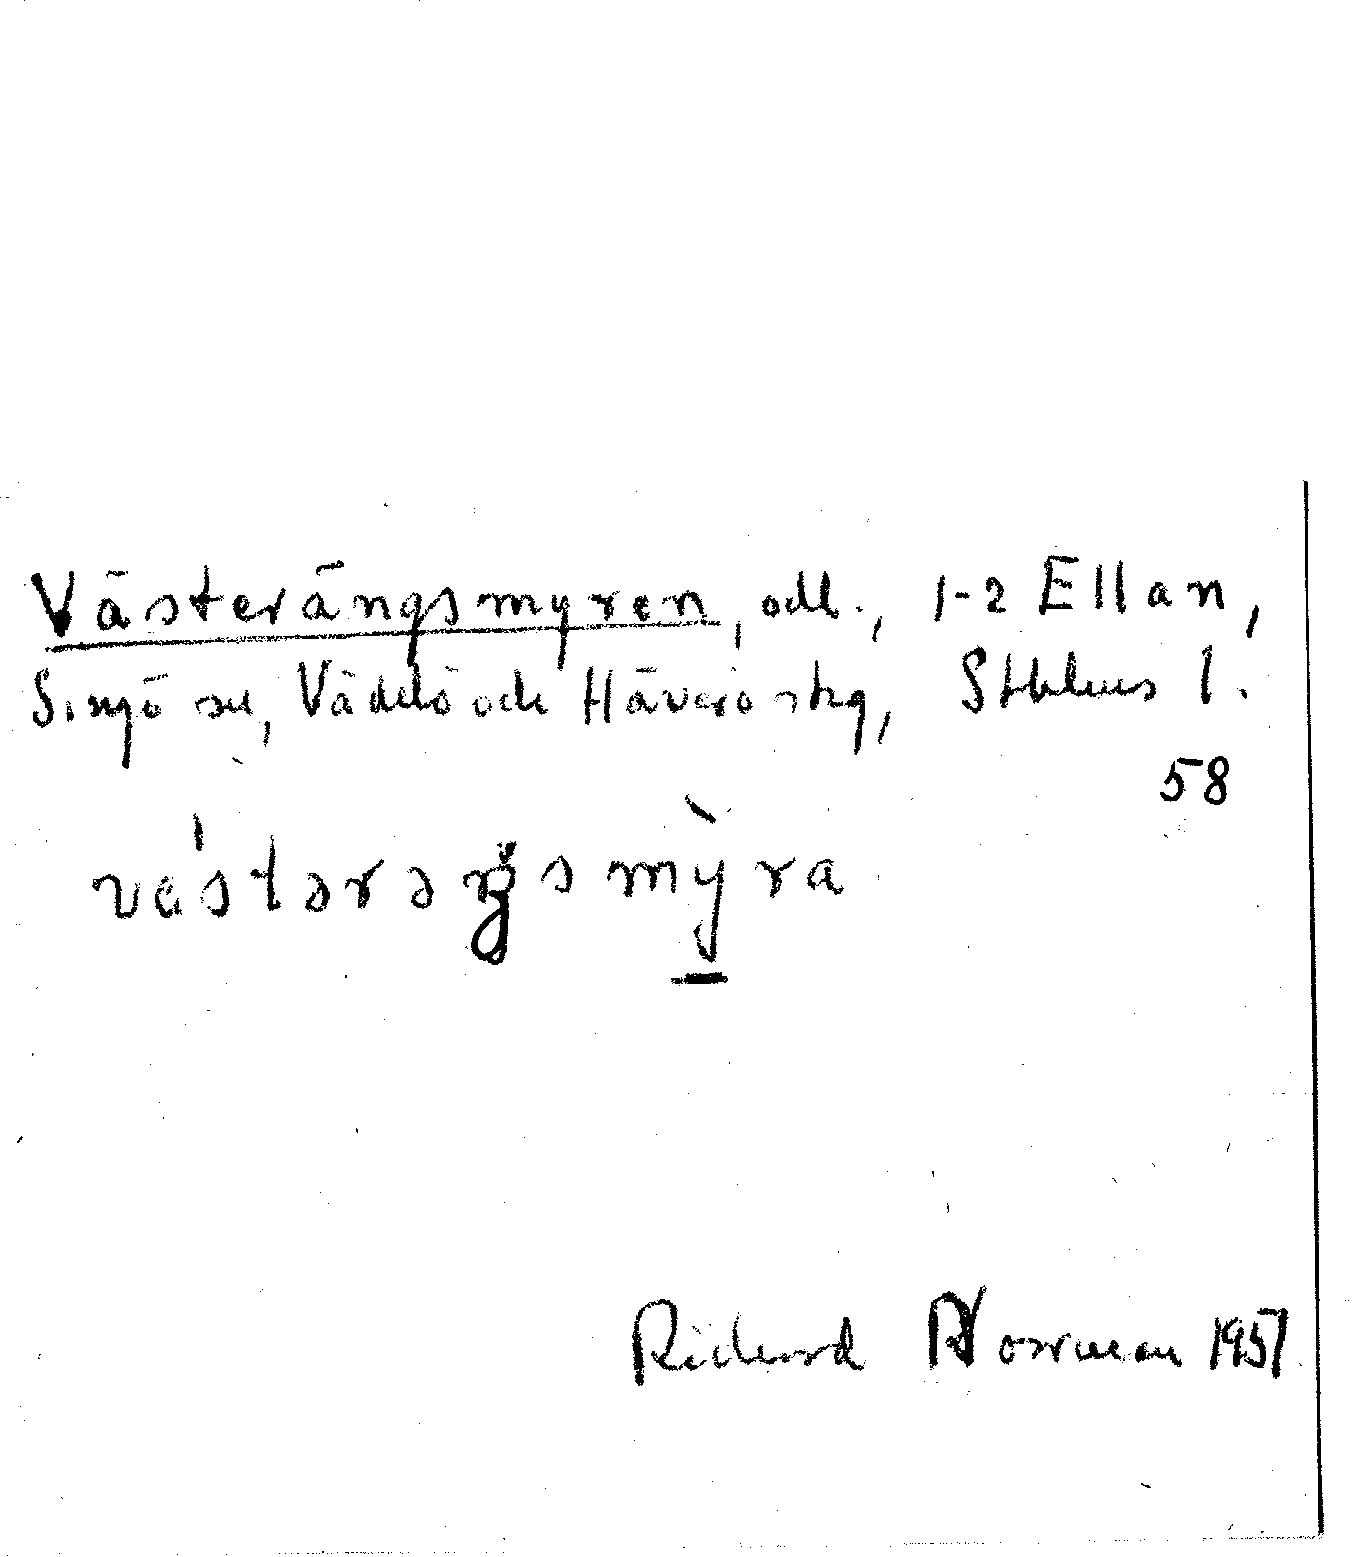 Västerängsmyren, odl., 1-2 Ellan,
Singö sn, Väddö och Häverö skg, Sthlms l.
58
västərəŋsmỳra
Richard Norrman 1957